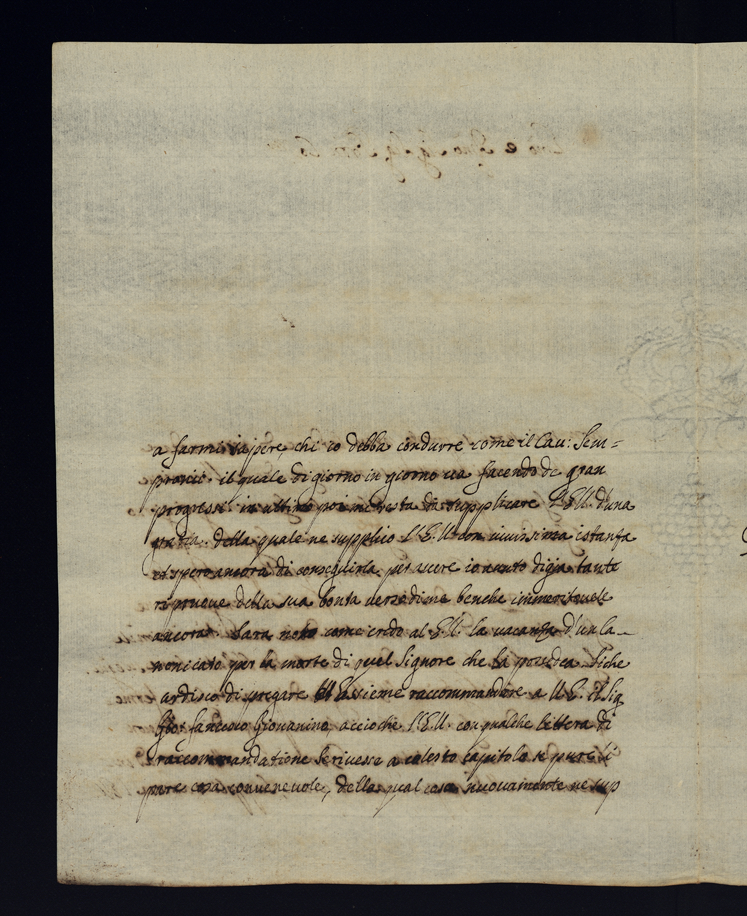 a farmi sapere, chi io debba condurre come il Cau: Sem=
pronio il quale di giorno in giorno ua facendo de gran
progressi. in ultimo poi mi resta da supplicare l'E.U. d'una
gratia. della quale ne supplico l'E.U. con uiuissima istanza
et spero ancora di conseguirla per essere io
riproue della sua bontà uerso di me benche immeriteuole
ancora. Sarà noto come credo al E.U. la uacanza d'un Ca-
nonicato per la morte di quel Signore che la possedea. Siche
ardisco di pregare et assieme raccommandare a U.E. il Sig
Giouanino, accioche l'E.U. con qualche lettera di
raccommandatione scriuesse a cotesto capitolo se pure li
pare cosa conueneuole, della qual cosa nuouamente ne sup